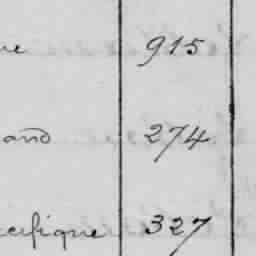 ue 915
and 274
acifique 327